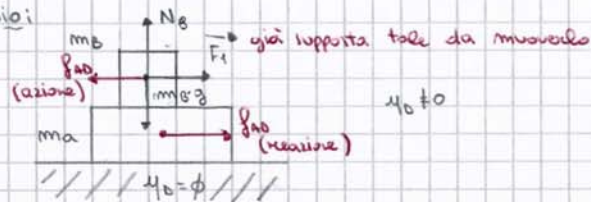 sioi
N_B
m_B
F_1 già supposta tale da muoverlo
f_AD
(azione)
m_B·g
μ_D ≠ 0
f_AD
ma
(reazione)
μ_D = ϕ